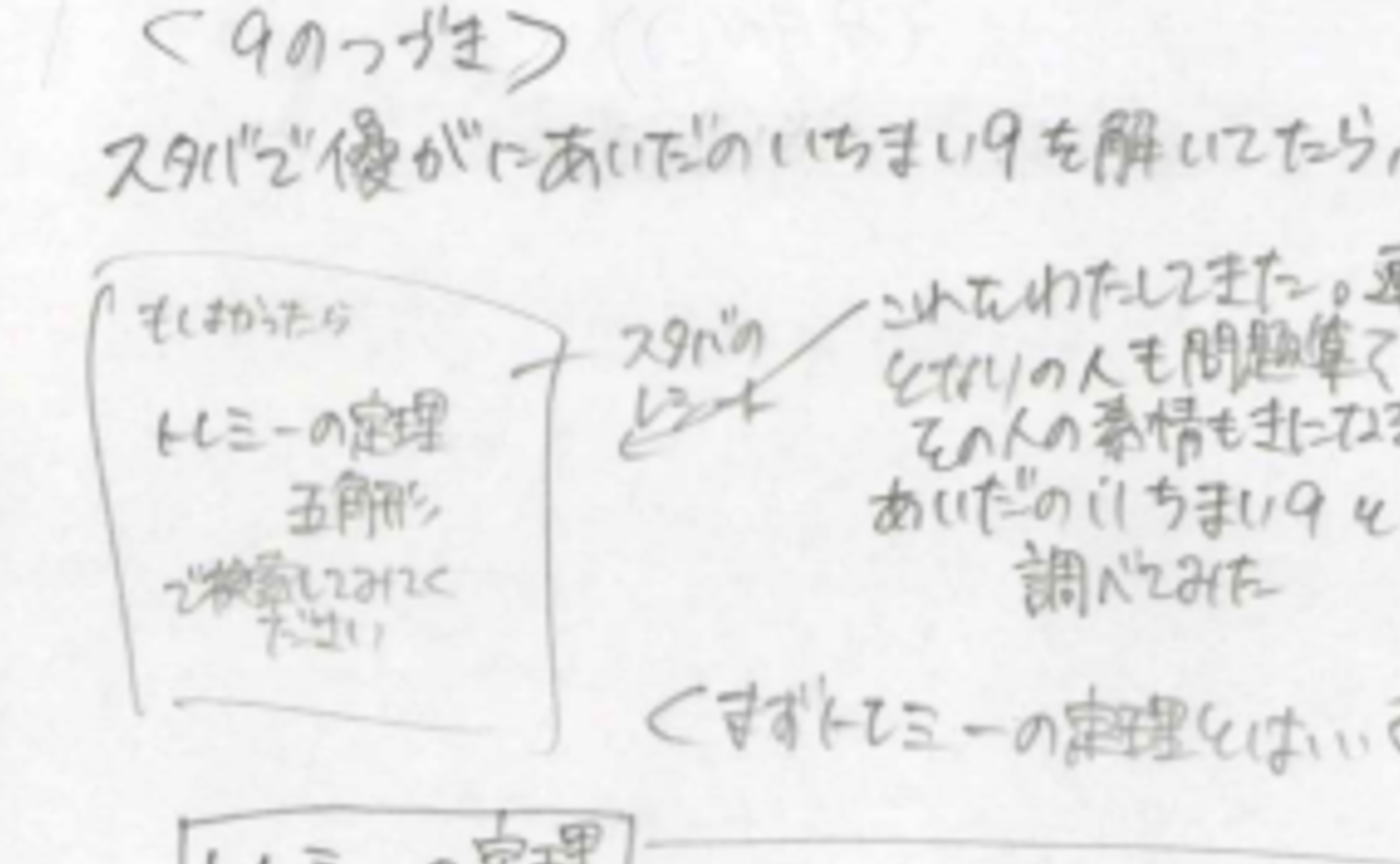 <9のつづき>
スタバで優がにあいだのいちまい9を解いてたら,
もしよかったら
トレミーの定理
五角形
で検索してみてく
ださい
スタバの
レシート
これをわたしてきた。
となりの人も問題
その人の素情もきになる
あいだのいちまい9と
調べてみた
<まずトレミーの定理とは…
トレミーの定理